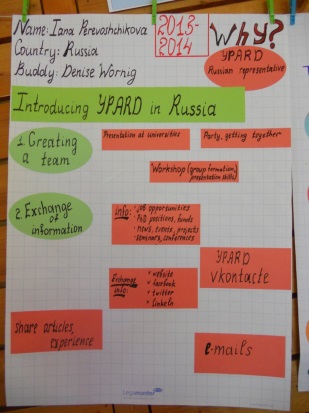 Name: Iana Perevoshchikova
Country: Russia
Buddy: Denise Wornig
2013-
2014
Why?
YPARD
Russian representative
Introducing YPARD in Russia
1. Creating
a team
Presentation at universities
Party, getting together
Workshop (group formation,
presentation skills)
2. Exchange
of
information
info:
• job opportunities
• PhD positions, funds
• news, events, projects
• seminars, conferences
Exchange
info:
• website
• facebook
• twitter
• linkeln
YPARD
vkontacte
share articles,
experience
e-mails